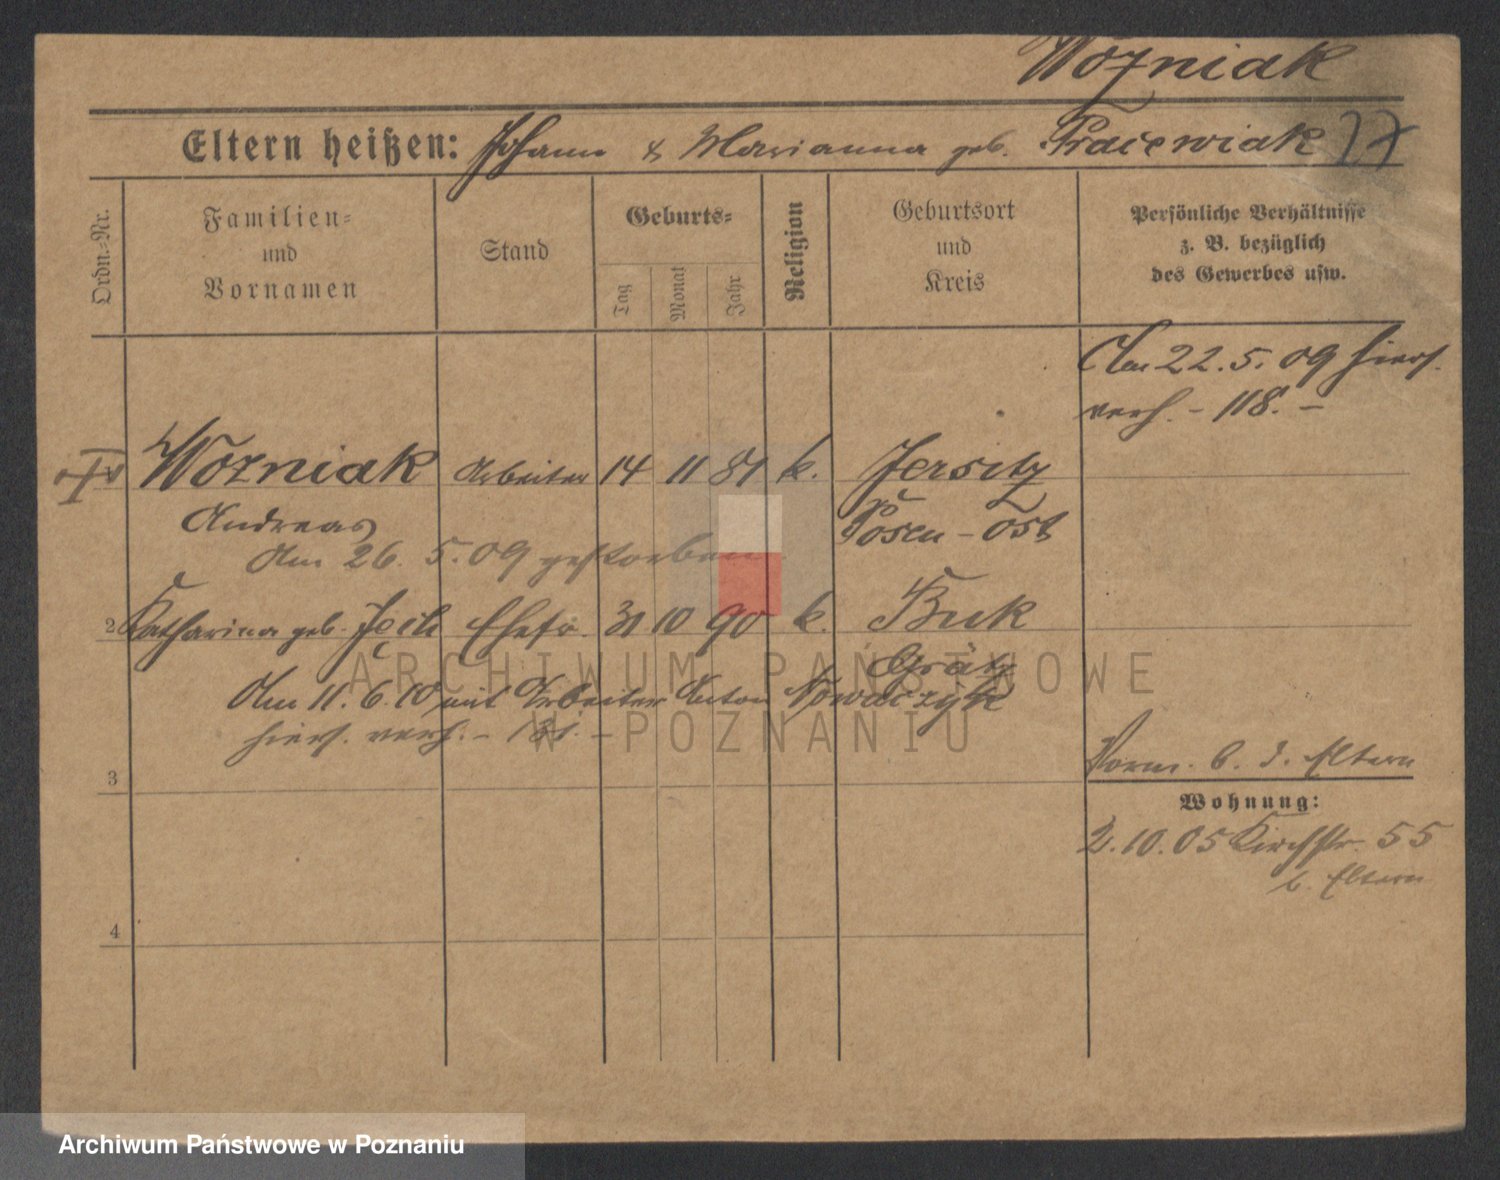 Woźniak
Eltern heißen: Johann & Marianna geb. 27
Ordn.-Nr.
Familien-
und
Vornamen
Stand
Geburts-
Tag
Monat
Jahr
Religion
Geburtsort
und
Kreis
Persönliche Verhältnisse
z. B. bezüglich
des Gewerbes usw.
Am 22.5.09 hiers.
verh. - 118. -
Wozniak Arbeiter 14 11 81 k. Jersitz
Andreas Posen-Ost
Am 26. 5. 09 gestorben
2 Katharina geb. Ehefr. 31 10 90 k. Buk
Grätz
Am 11. 6. 10 mit Arbeiter Anton Nowaczyk
hiers. verh. -
3
Vorm. b. d. Eltern
Wohnung:
2.10.05 Kirchstr. 55
b. Eltern
4
ARCHIWUM PAŃSTWOWE
W POZNANIU
Archiwum Państwowe w Poznaniu